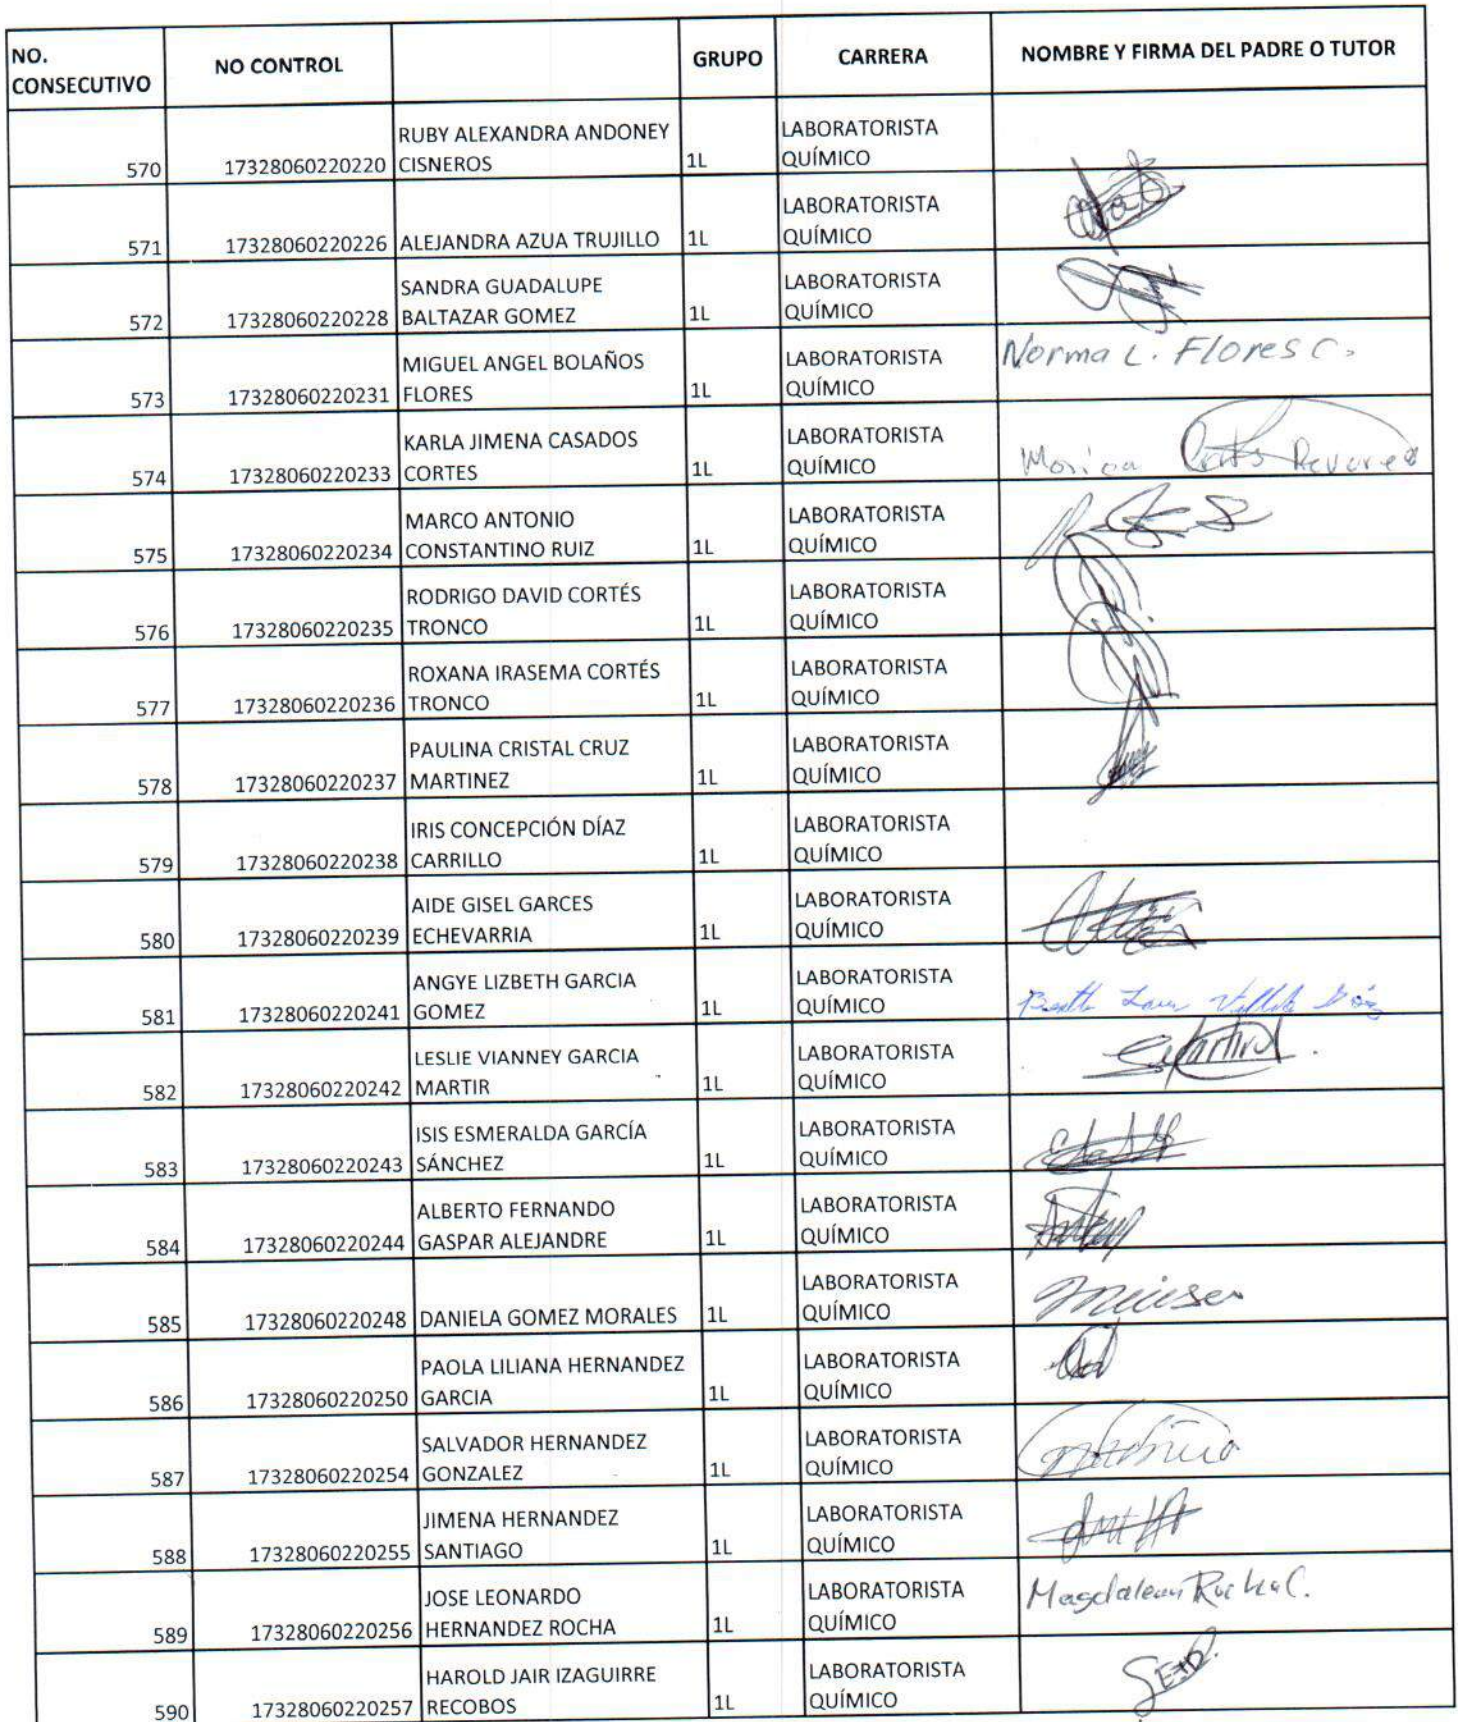 NO. CONSECUTIVO NO CONTROL GRUPO CARRERA NOMBRE Y FIRMA DEL PADRE O TUTOR
570 17328060220220 RUBY ALEXANDRA ANDONEY CISNEROS 1L LABORATORISTA QUÍMICO
571 17328060220226 ALEJANDRA AZUA TRUJILLO 1L LABORATORISTA QUÍMICO
572 17328060220228 SANDRA GUADALUPE BALTAZAR GOMEZ 1L LABORATORISTA QUÍMICO
573 17328060220231 MIGUEL ANGEL BOLAÑOS FLORES 1L LABORATORISTA QUÍMICO Norma L. Flores C.
574 17328060220233 KARLA JIMENA CASADOS CORTES 1L LABORATORISTA QUÍMICO
575 17328060220234 MARCO ANTONIO CONSTANTINO RUIZ 1L LABORATORISTA QUÍMICO
576 17328060220235 RODRIGO DAVID CORTÉS TRONCO 1L LABORATORISTA QUÍMICO
577 17328060220236 ROXANA IRASEMA CORTÉS TRONCO 1L LABORATORISTA QUÍMICO
578 17328060220237 PAULINA CRISTAL CRUZ MARTINEZ 1L LABORATORISTA QUÍMICO
579 17328060220238 IRIS CONCEPCIÓN DÍAZ CARRILLO 1L LABORATORISTA QUÍMICO
580 17328060220239 AIDE GISEL GARCES ECHEVARRIA 1L LABORATORISTA QUÍMICO
581 17328060220241 ANGYE LIZBETH GARCIA GOMEZ 1L LABORATORISTA QUÍMICO
582 17328060220242 LESLIE VIANNEY GARCIA MARTIR 1L LABORATORISTA QUÍMICO
583 17328060220243 ISIS ESMERALDA GARCÍA SÁNCHEZ 1L LABORATORISTA QUÍMICO
584 17328060220244 ALBERTO FERNANDO GASPAR ALEJANDRE 1L LABORATORISTA QUÍMICO
585 17328060220248 DANIELA GOMEZ MORALES 1L LABORATORISTA QUÍMICO
586 17328060220250 PAOLA LILIANA HERNANDEZ GARCIA 1L LABORATORISTA QUÍMICO
587 17328060220254 SALVADOR HERNANDEZ GONZALEZ 1L LABORATORISTA QUÍMICO
588 17328060220255 JIMENA HERNANDEZ SANTIAGO 1L LABORATORISTA QUÍMICO
589 17328060220256 JOSE LEONARDO HERNANDEZ ROCHA 1L LABORATORISTA QUÍMICO C.
590 17328060220257 HAROLD JAIR IZAGUIRRE RECOBOS 1L LABORATORISTA QUÍMICO